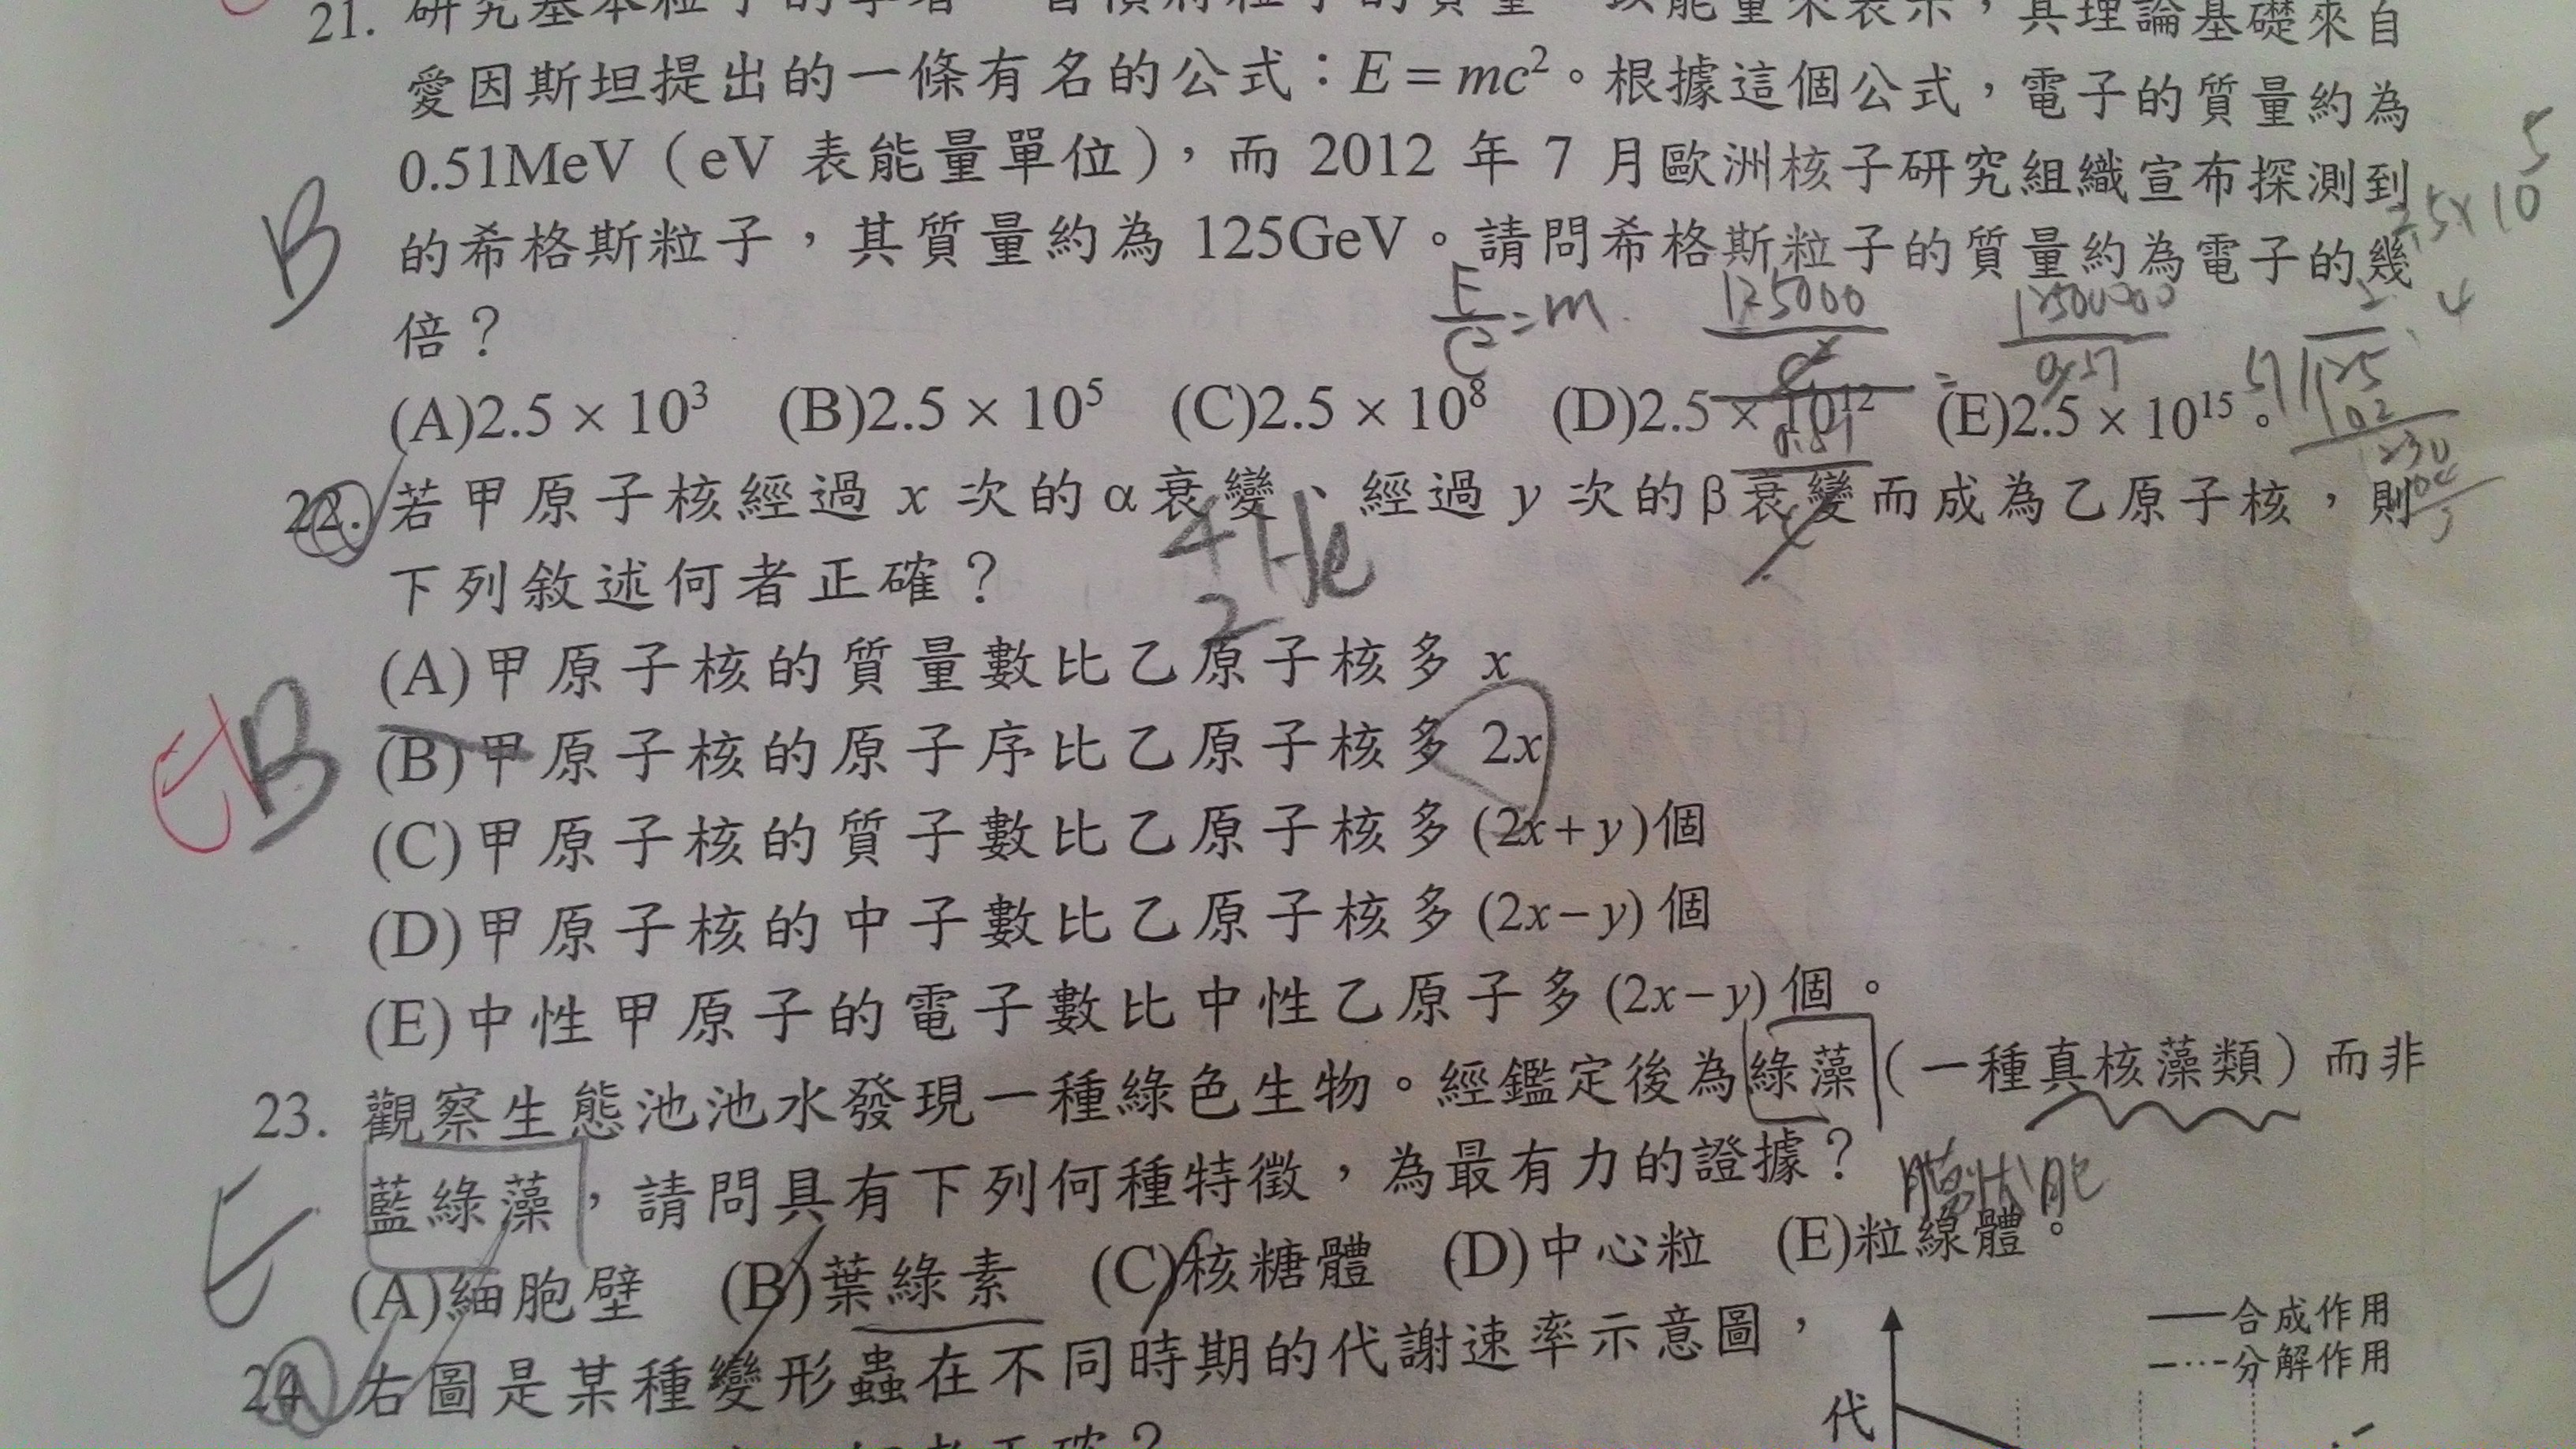 21. 研究基本粒子的學者,習慣將粒子的質量,以能量來表示,其理論基礎來自
愛因斯坦提出的一條有名的公式:E = mc²。根據這個公式,電子的質量約為
0.51MeV(eV 表能量單位),而 2012 年 7 月歐洲核子研究組織宣布探測到
的希格斯粒子,其質量約為 125GeV。請問希格斯粒子的質量約為電子的幾
倍?
B
2.5×10⁵
E/C² = m
125000
(A)2.5 × 10³ (B)2.5 × 10⁵ (C)2.5 × 10⁸ (D)2.5 × 10¹² (E)2.5 × 10¹⁵。
22. 若甲原子核經過 x 次的α衰變、經過 y 次的β衰變而成為乙原子核,則
下列敘述何者正確?
⁴₂He
(A)甲原子核的質量數比乙原子核多 x
(B)甲原子核的原子序比乙原子核多 2x
B
(C)甲原子核的質子數比乙原子核多(2x+y)個
(D)甲原子核的中子數比乙原子核多(2x−y)個
(E)中性甲原子的電子數比中性乙原子多(2x−y)個。
23. 觀察生態池池水發現一種綠色生物。經鑑定後為綠藻(一種真核藻類)而非
藍綠藻,請問具有下列何種特徵,為最有力的證據?
E
(A)細胞壁 (B)葉綠素 (C)核糖體 (D)中心粒 (E)粒線體。
24. 右圖是某種變形蟲在不同時期的代謝速率示意圖,
合成作用
分解作用
代